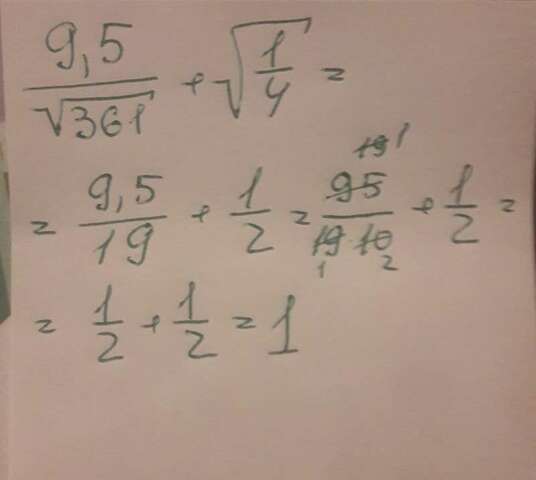 9,5/√361 + √(1/4) =
= 9,5/19 + 1/2 = 95/(19·10) + 1/2 =
= 1/2 + 1/2 = 1